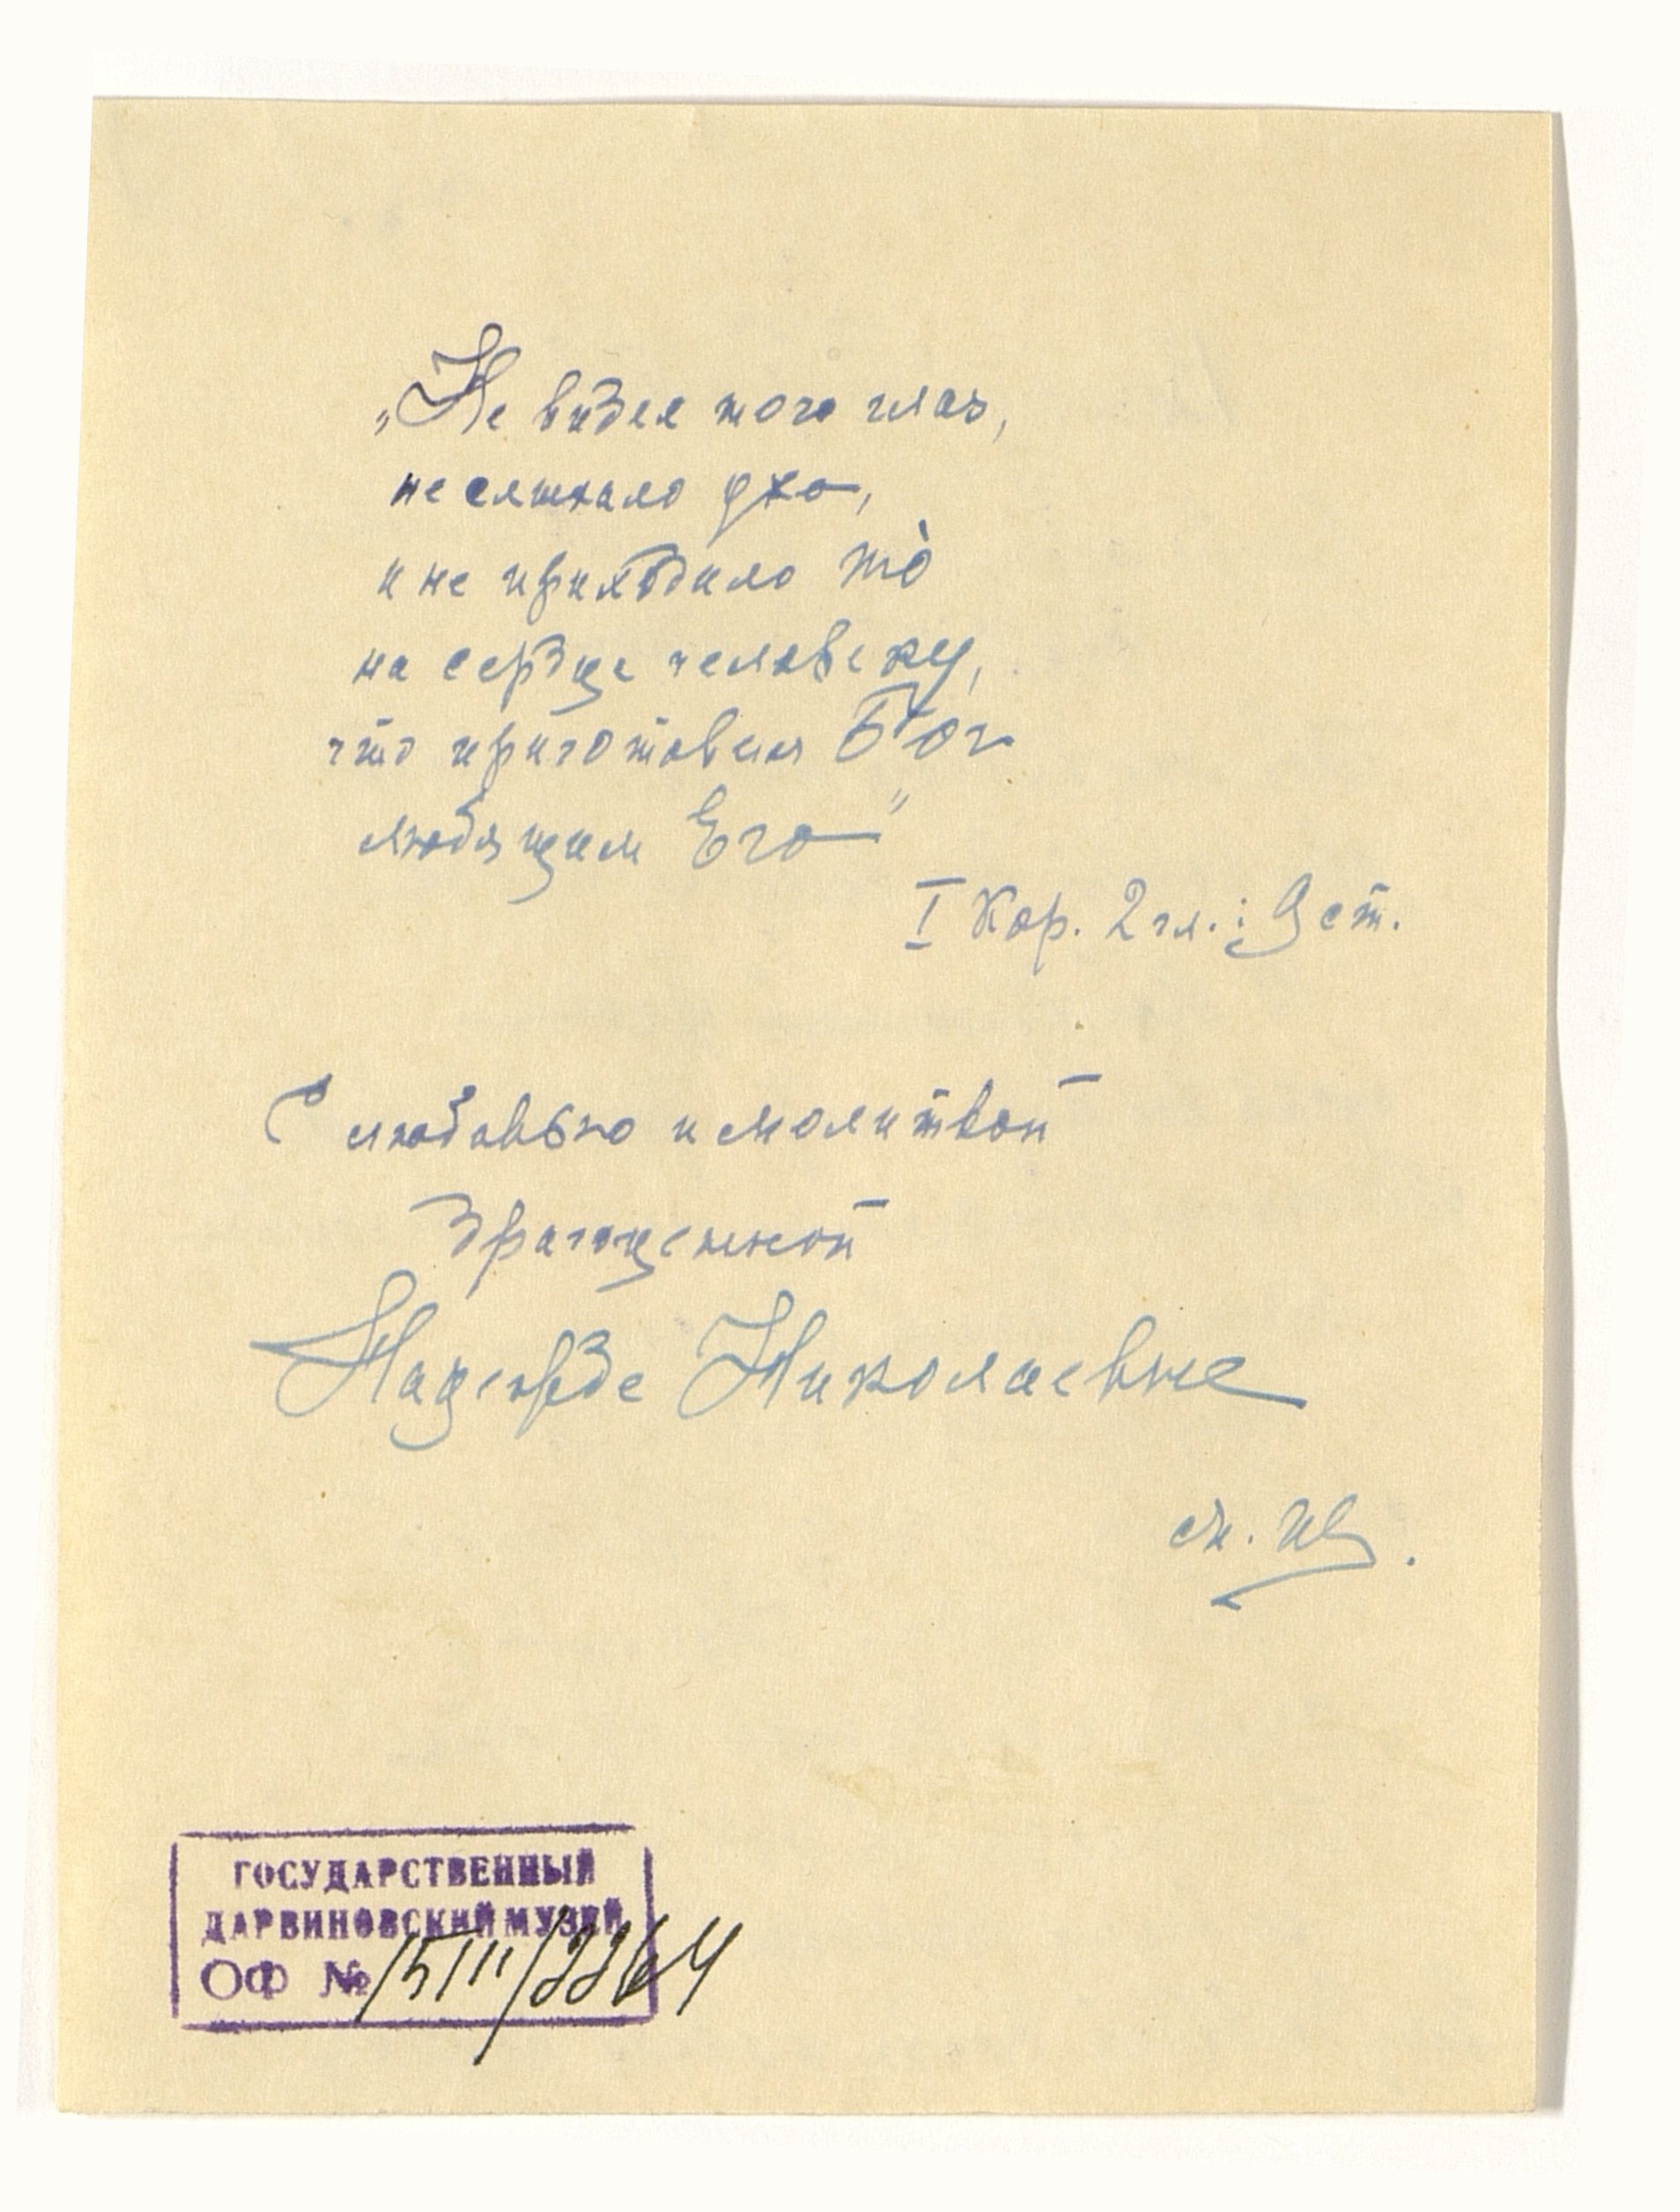 „Не видел того глаз,
не слыхало ухо,
и не приходило то̀
на сердце человеку,
что приготовил Бог
любящим Его”
I Кор. 2 гл.: 9 ст.
С любовью и молитвой
драгоценной
Надежде Николаевне
ГОСУДАРСТВЕННЫЙ
ДАРВИНОВСКИЙ МУЗЕЙ
ОФ №15111/2264